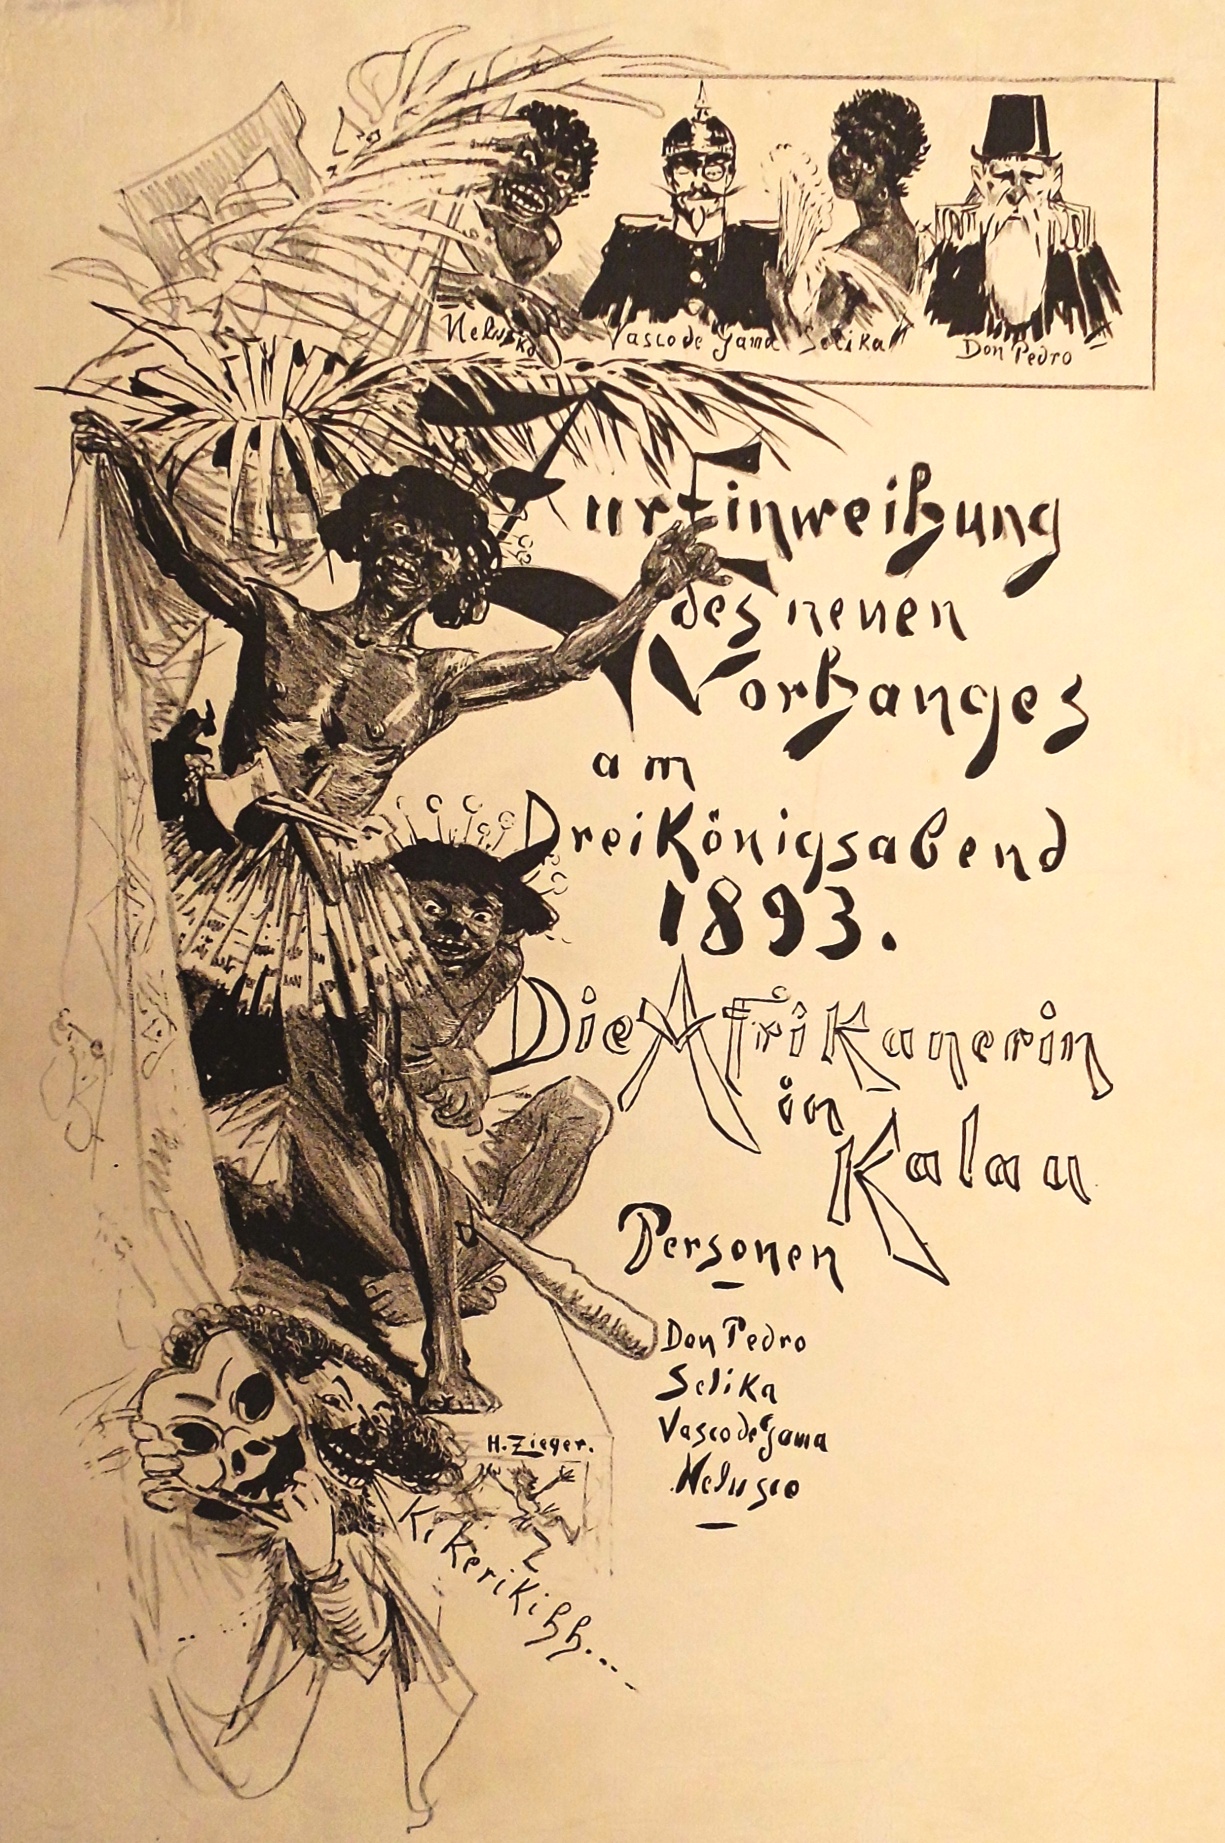 Nelusko Vasco de Gama Selika Don Pedro
Zur Einweihung
des neuen
Vorhanges
am
DreiKönigsabend
1893.
Die AfriKanerin
in
Kalau
Personen
Don Pedro
SeliKa
Vasco de Gama
Nelusco
H. Zieger.
KiKeriKihh...